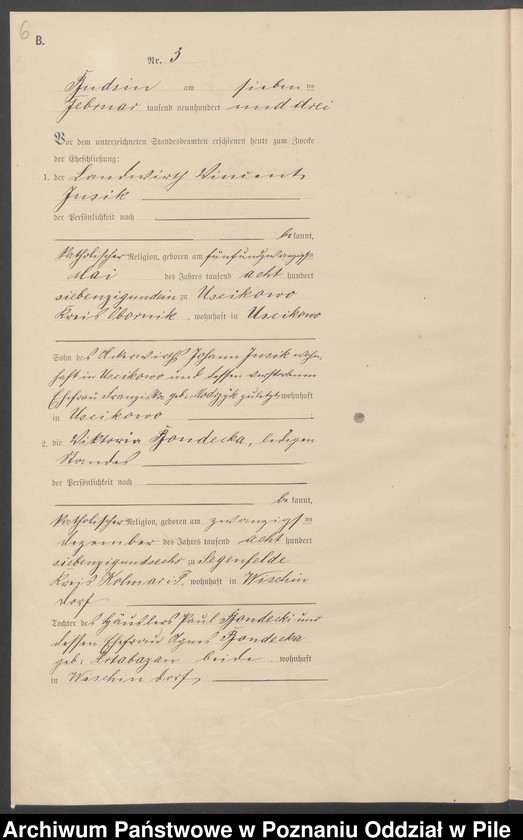 6
B.
Nr. 3
Budsin am sieben ten
Februar tausend neunhundert und drei
Vor dem unterzeichneten Standesbeamten erschienen heute zum Zwecke
der Eheschließung:
1. der Landwirth Vincent
Jusik
der Persönlichkeit nach
be kannt,
katholischer Religion, geboren am fünfundzwanzigsten
Mai des Jahres tausend acht hundert
siebenzigund zu Uscikowo
Kreis Obornik, wohnhaft in Uscikowo
Sohn des Ackerwirths Johann Jusik wohn-
haft in Uscikowo und dessen verstorbenen
Ehefrau Franziska geb. zuletzt wohnhaft
in Uscikowo
2. die Viktoria Rondecka, ledigen
Standes
der Persönlichkeit nach
be kannt,
katholischer Religion, geboren am zwanzigsten
Dezember des Jahres tausend acht hundert
siebenzigundsechs zu Segenfelde
Kreis Kolmar i. P. wohnhaft in Wischin
dorf
Tochter des Häuslers Paul Rondecki und
dessen Ehefrau Agnes Rondecka
geb. Artabazan, beide wohnhaft
in Wischin dorf
Archiwum Państwowe w Poznaniu Oddział w Pile